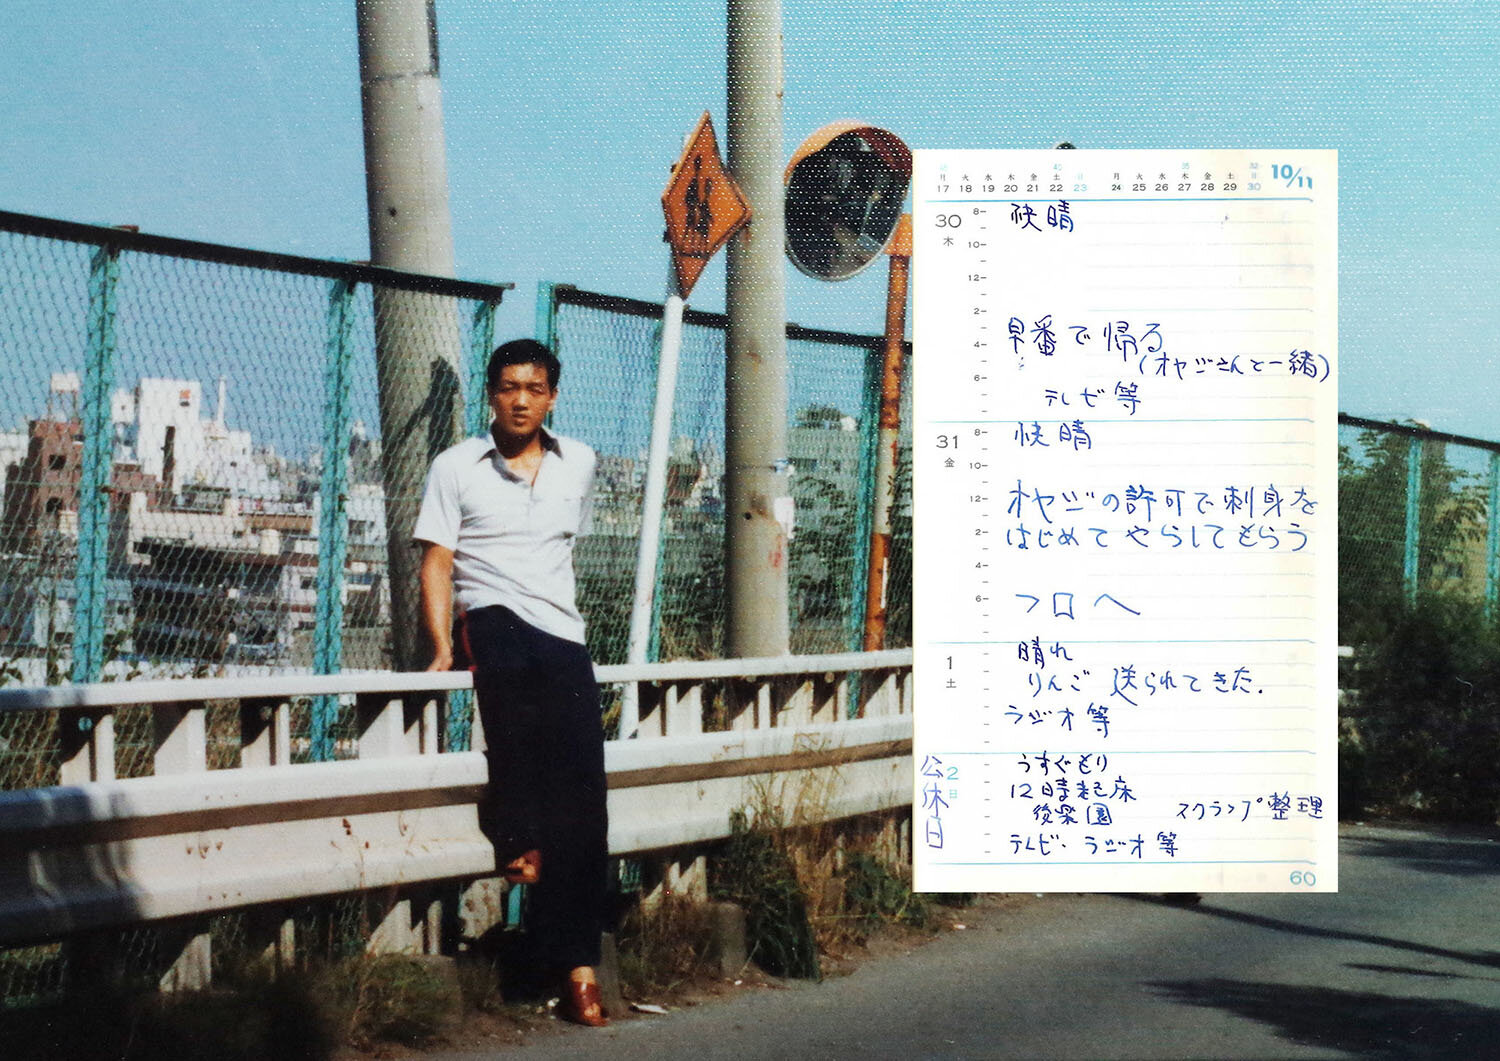 月 火 水 木 金 土 日 月 火 水 木 金 土 日
17 18 19 20 21 22 23 24 25 26 27 28 29 30
10/11
30 木
8 快晴
10
12
2
4 早番で帰る
(オヤジさんと一緒)
6 テレビ等
31 金
8 快晴
10
12 オヤジの許可で刺身を
2 はじめてやらしてもらう
4
6 フロへ
1 土
晴れ
りんご 送られてきた.
ラジオ等
2 日
公休日
うすぐもり
12時起床
後楽園 スクラップ整理
テレビ・ラジオ等
60